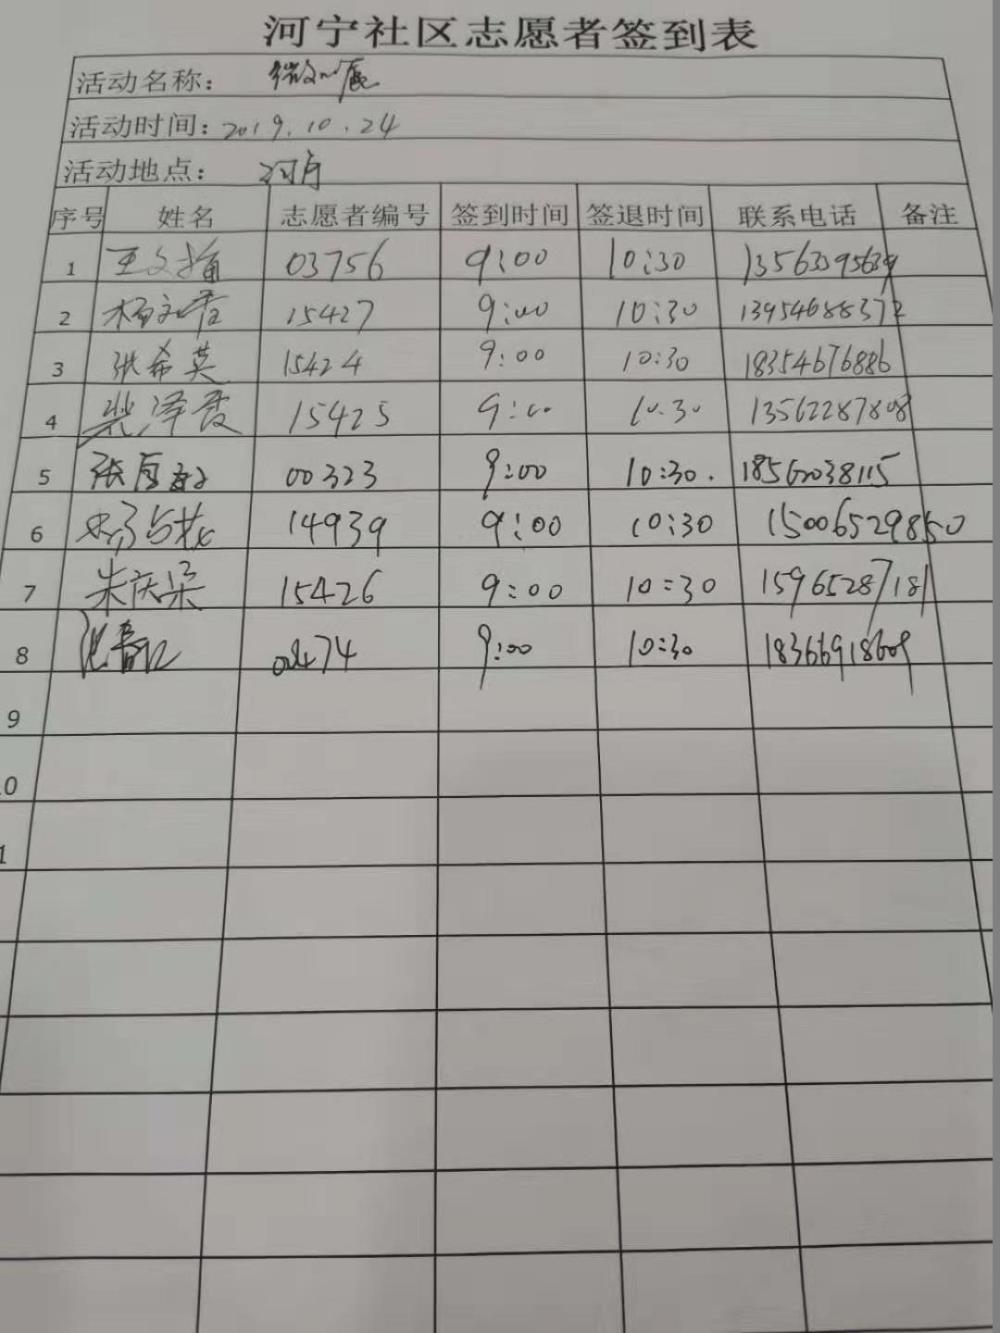 河宁社区志愿者签到表
活动名称：
活动时间：2019.10.24
活动地点：河宁
序号 姓名 志愿者编号 签到时间 签退时间 联系电话 备注
1 王文 03756 9:00 10:30 13563395639
2 杨 15427 9:00 10:30 13954688372
3 张希英 15424 9:00 10:30 18354676886
4 柴泽霞 15425 9:00 10:30 13562287808
5 张 00323 9:00 10:30. 18560038115
6 14939 9:00 10:30 15006529850
7 朱庆荣 15426 9:00 10:30 15965287181
8 9:00 10:30 18366918609
9
10
1